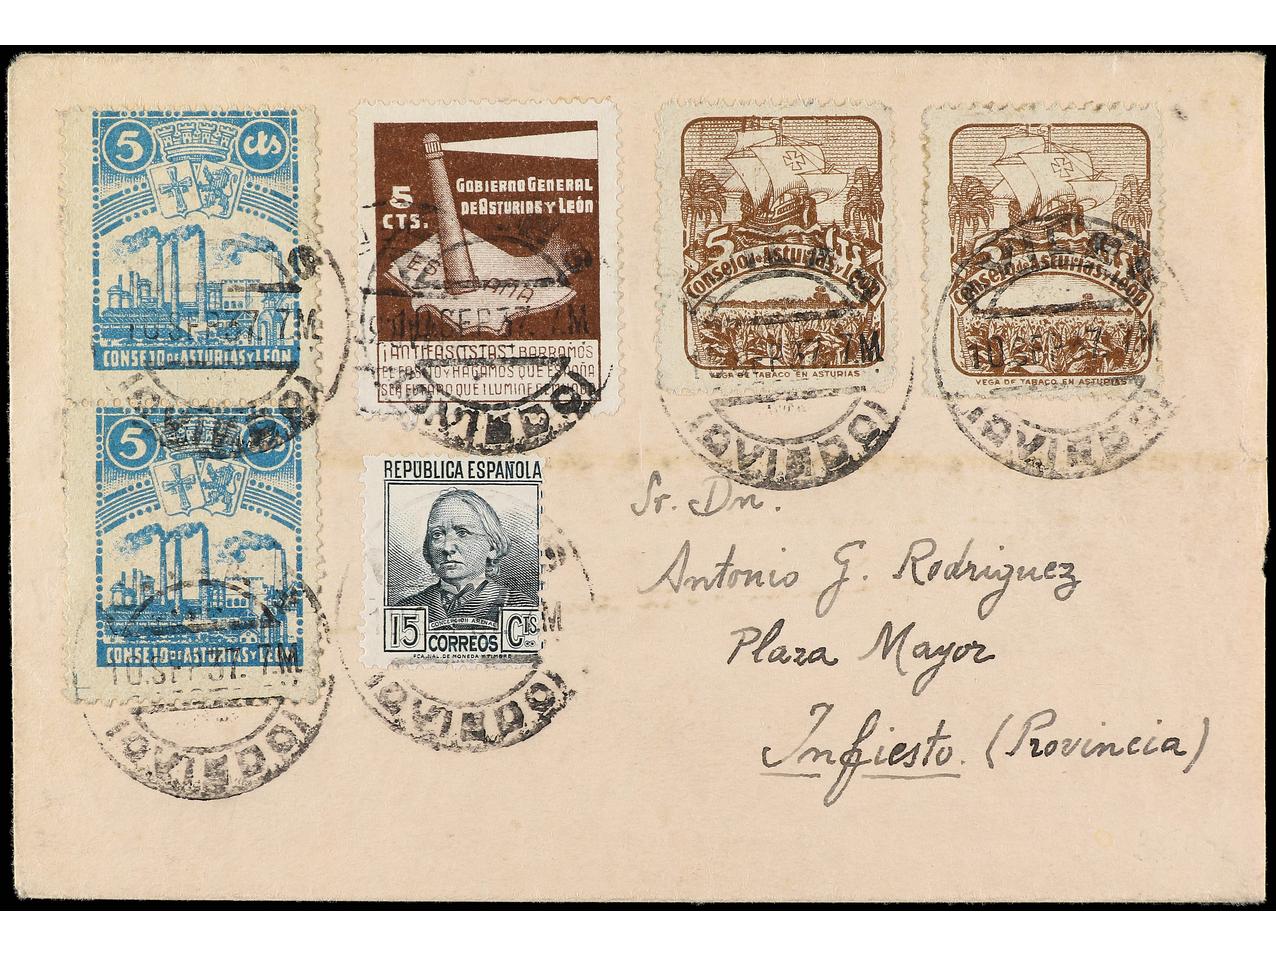 5 cts
CONSEJO DE ASTURIAS Y LEÓN
10.SEP.37. 7.M
5
CONSEJO DE ASTURIAS Y LEÓN
10.SEP.37. 7.M
(OVIEDO)
5 CTS.
GOBIERNO GENERAL
DE ASTURIAS Y LEÓN
SEP.37. 7.M
¡ANTIFASCISTAS! BARRAMOS
EL FASCIO Y HAGAMOS QUE ESPAÑA
SEA EL FARO QUE ILUMINE
(OVIEDO)
5 cts
Consejo de Asturias y León
37. 7.M
VEGA DE TABACO EN ASTURIAS
(OVIEDO)
5 cts
Consejo de Asturias y León
10 SEP 37. 7M
VEGA DE TABACO EN ASTURIAS
(OVIEDO)
REPÚBLICA ESPAÑOLA
CONCEPCIÓN ARENAL
15 CTS
CORREOS
FCA. NAL. DE MONEDA Y TIMBRE
(OVIEDO)
Sr. Dn.
Antonio G. Rodriguez
Plaza Mayor
Infiesto. (Provincia)